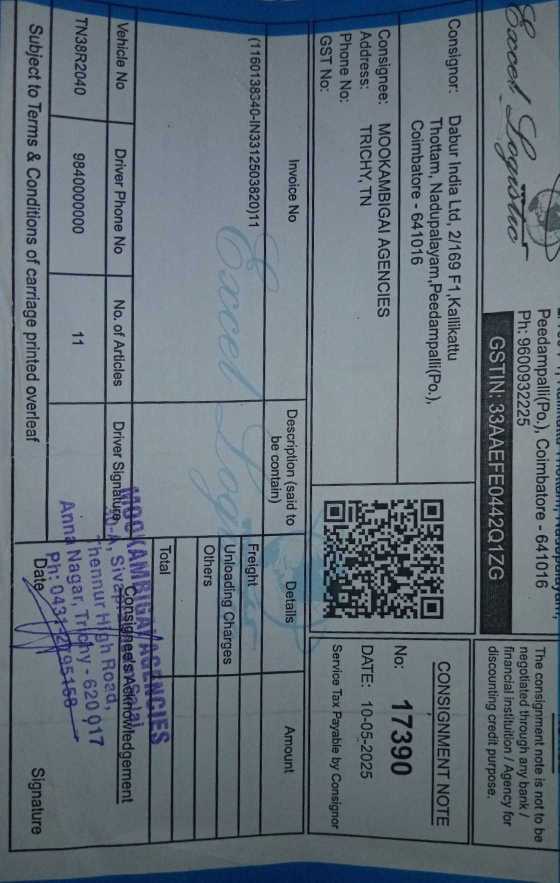 Excel Logistic
Peedampalli(Po.), Coimbatore - 641016
Ph: 9600932225
GSTIN: 33AAEFE0442Q1ZG
The consignment note is not to be
negotiated through any bank /
financial instituition / Agency for
discounting credit purpose.
Consignor: Dabur India Ltd, 2/169 F1,Kallikattu
Thottam, Nadupalayam,Peedampalli(Po.),
Coimbatore - 641016
Consignee: MOOKAMBIGAI AGENCIES
Address: TRICHY, TN
Phone No:
GST No:
CONSIGNMENT NOTE
No: 17390
DATE: 10-05-2025
Service Tax Payable by Consignor
Invoice No Description (said to be contain) Details Amount
(1160138340-IN3312503820)11
Freight
Unloading Charges
Others
Total
Excel Logistic
Vehicle No Driver Phone No No. of Articles Driver Signature
TN38R2040 9840000000 11
Consignee's Acknowledgement
Date Signature
MOOKAMBIGAI AGENCIES
Thennur High Road,
Anna Nagar, Trichy - 620 017
Subject to Terms & Conditions of carriage printed overleaf